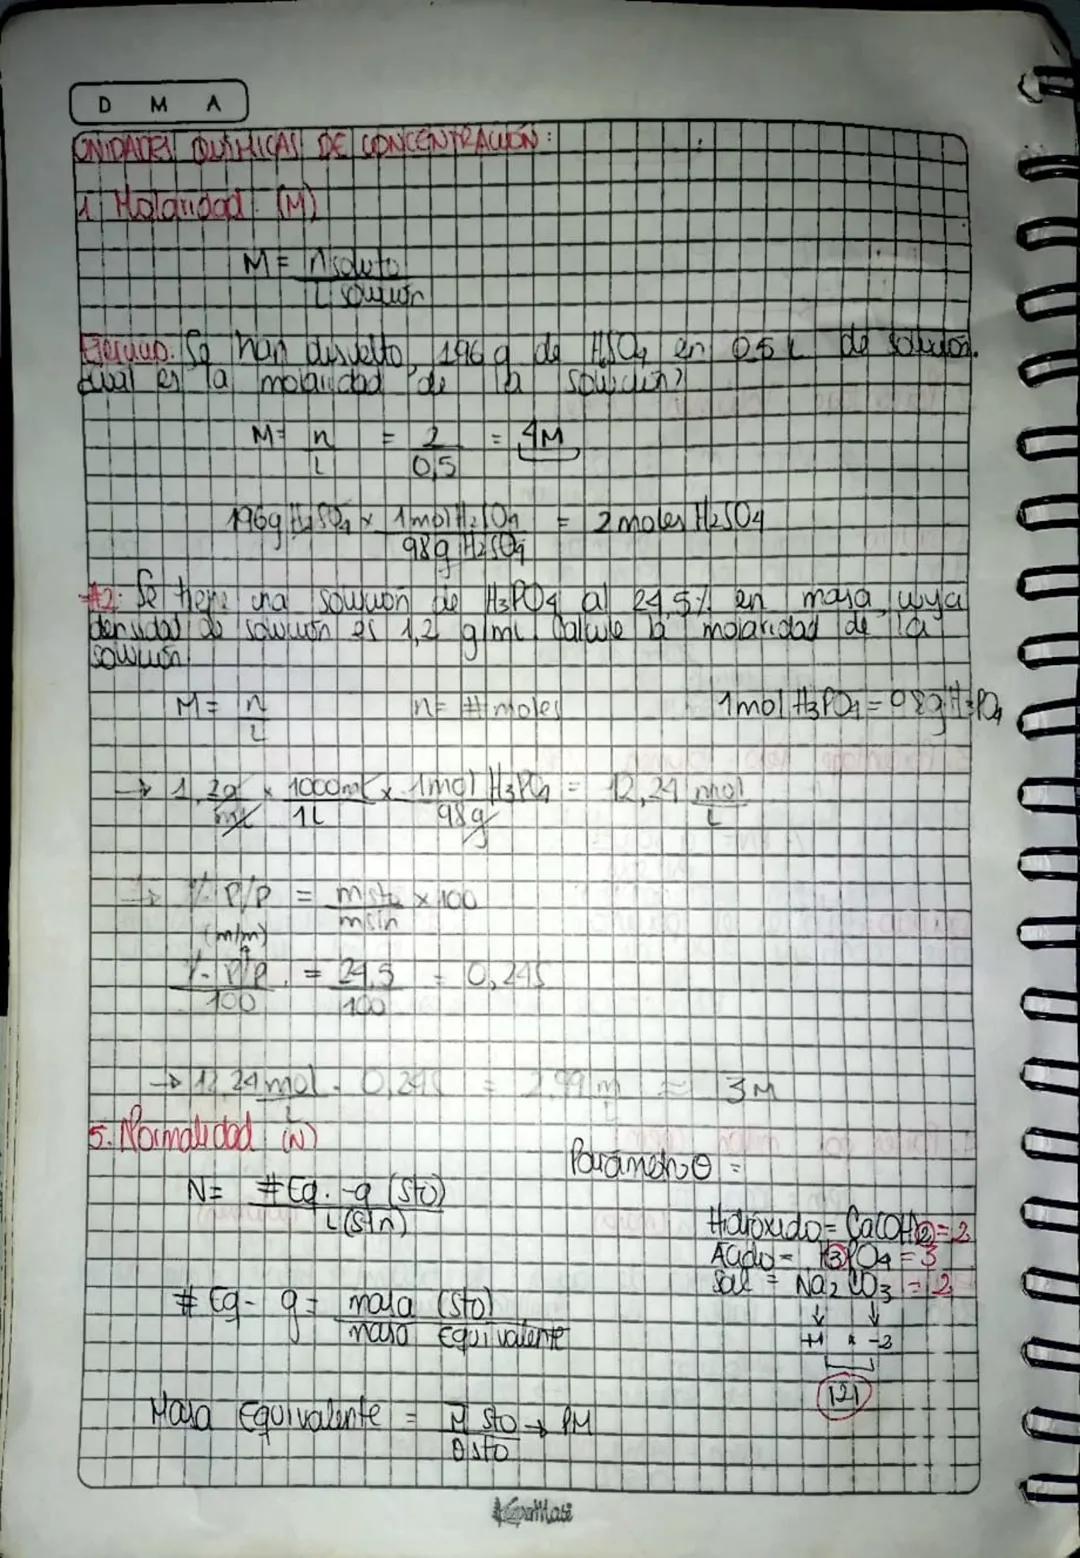 D M A
UNIDADES QUÍMICAS DE CONCENTRACIÓN:
1. Molaridad (M)
M = n soluto
L solución
Ejercicio. Se han disuelto, 196 g de H2SO4 en 0.5 L de solución.
cual es la molaridad de la solución?
M = n = 2 = 4M
L 0,5
196g H2SO4 x 1mol H2SO4 = 2 moles H2SO4
98g H2SO4
#2. Se tiene una solución de H3PO4 al 24,5% en masa, cuya
densidad de solución es 1,2 g/ml. Calcule la molaridad de la
solución.
M = n n = # moles 1mol H3PO4 = 98g H3PO4
L
→ 1,2g x 1000ml x 1mol H3PO4 = 12,24 mol
ml 1L 98g L
→ % P/P = m sto x 100
(m/m) m sln
% P/P = 24,5 = 0,245
100 100
→ 12,24 mol . 0,245 = 2,99 m ≈ 3M
L L
5. Normalidad (N)
Parámetro θ =
N = # Eq. -g (sto)
L (sln)
Hidróxido = Ca(OH)2 = 2
Ácido = H3PO4 = 3
Sal = Na2 CO3 = 2
# Eq - g = masa (sto)
masa equivalente
+1 x -2
|2|
Masa Equivalente = M sto → PM
θ sto